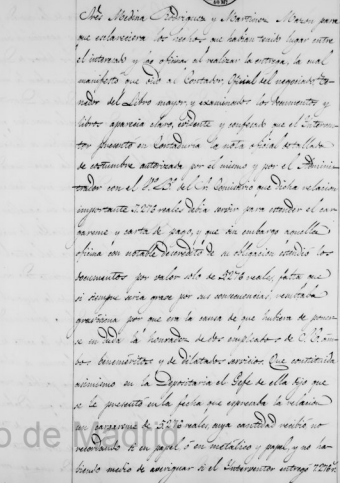 Sres Medina Rodriguez y Martinez Mazon para
que esclareciera los hechos que habian tenido lugar entre
el interesado y las oficinas al realizar la entrega, la cual
manifestó que oido al Contador, Oficial del negociado te-
nedor del Libro mayor y examinados los documentos y
libros aparecia claro, evidente y confesado que el Interven-
tor presentó en Contaduria la nota oficial detallada
de costumbre autorizada por el mismo y por el Adminis-
trador con el Vº Bº del Sr. Comisario que dicha relacion
importante 7.276 reales debia servir para estender el car-
gareme y carta de pago, y que sin embargo aquella
oficina con notable descredito de su obligacion estendió los
documentos por valor solo de 5276 reales, falta que
si siempre seria grave por sus consecuencias, resultaba
gravisima por que era la causa de que hubiera de poner-
se en duda la honradez de dos empleados de V. E. am-
bos benemeritos y de dilatados servicios. Que constituida
asimismo en la Depositaria el Gefe de ella dijo que
se le presentó en la fecha que espresaba la relacion
un cargareme de 5276 reales, cuya cantidad recibió no
recordando si en papel ó en metalico y papel, y no ha-
biendo medio de averiguar si el Interventor entregó 7276 rs
o de Madrid